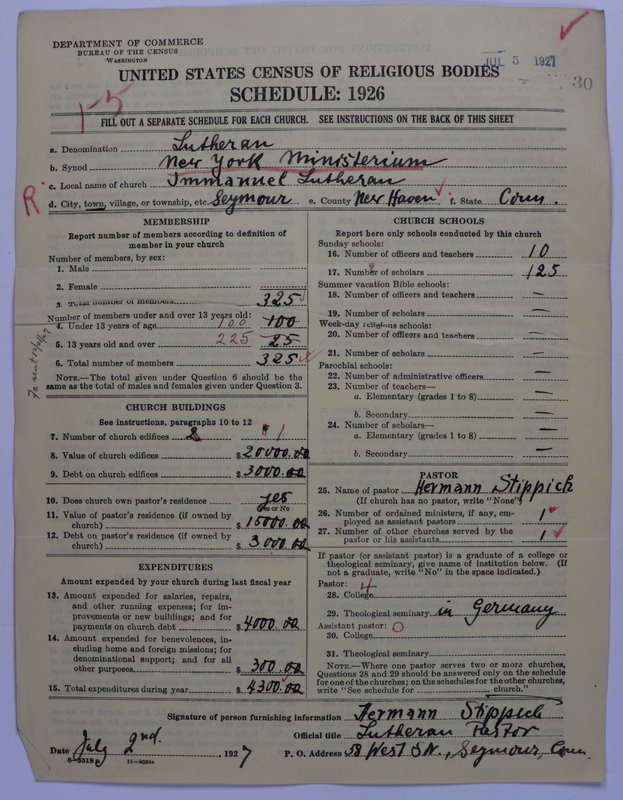 DEPARTMENT OF COMMERCE
BUREAU OF THE CENSUS
WASHINGTON
JUL 5 1927
30
UNITED STATES CENSUS OF RELIGIOUS BODIES
SCHEDULE: 1926
1-5
FILL OUT A SEPARATE SCHEDULE FOR EACH CHURCH. SEE INSTRUCTIONS ON THE BACK OF THIS SHEET
a. Denomination Lutheran
b. Synod New York Ministerium
c. Local name of church Immanuel Lutheran
R
d. City, town, village, or township, etc. Seymour e. County New Haven f. State Conn.
MEMBERSHIP
Report number of members according to definition of
member in your church
Number of members, by sex:
1. Male
2. Female
3. Total number of members 325
Number of members under and over 13 years old:
4. Under 13 years of age 100 100
5. 13 years old and over 225 25
6. Total number of members 325
NOTE.—The total given under Question 6 should be the
same as the total of males and females given under Question 3.
CHURCH BUILDINGS
See instructions, paragraphs 10 to 12
7. Number of church edifices 1
8. Value of church edifices $ 20000.00
9. Debt on church edifices $ 3000.00
10. Does church own pastor's residence yes
Yes or No
11. Value of pastor's residence (if owned by
church) $ 15000.00
12. Debt on pastor's residence (if owned by
church) $ 3000.00
EXPENDITURES
Amount expended by your church during last fiscal year
13. Amount expended for salaries, repairs,
and other running expenses; for im-
provements or new buildings; and for
payments on church debt $ 4000.00
14. Amount expended for benevolences, in-
cluding home and foreign missions; for
denominational support; and for all
other purposes $ 300.00
15. Total expenditures during year $ 4300.00
CHURCH SCHOOLS
Report here only schools conducted by this church
Sunday schools:
16. Number of officers and teachers 10
17. Number of scholars 125
Summer vacation Bible schools:
18. Number of officers and teachers —
19. Number of scholars —
Week-day religious schools:
20. Number of officers and teachers —
21. Number of scholars —
Parochial schools:
22. Number of administrative officers —
23. Number of teachers—
a. Elementary (grades 1 to 8) —
b. Secondary —
24. Number of scholars—
a. Elementary (grades 1 to 8) —
b. Secondary —
PASTOR
25. Name of pastor Hermann Stippich
(If church has no pastor, write "None")
26. Number of ordained ministers, if any, em-
ployed as assistant pastors 1
27. Number of other churches served by the
pastor or his assistants 1
If pastor (or assistant pastor) is a graduate of a college or
theological seminary, give name of institution below. (If
not a graduate, write "No" in the space indicated.)
Pastor: 4
28. College
29. Theological seminary in Germany
Assistant pastor: 0
30. College
31. Theological seminary
NOTE.—Where one pastor serves two or more churches,
Questions 28 and 29 should be answered only on the schedule
for one of the churches; on the schedules for the other churches,
write "See schedule for church."
Signature of person furnishing information Hermann Stippich
Official title Lutheran Pastor
Date July 2nd. , 1927 P. O. Address 58 West St., Seymour, Conn.